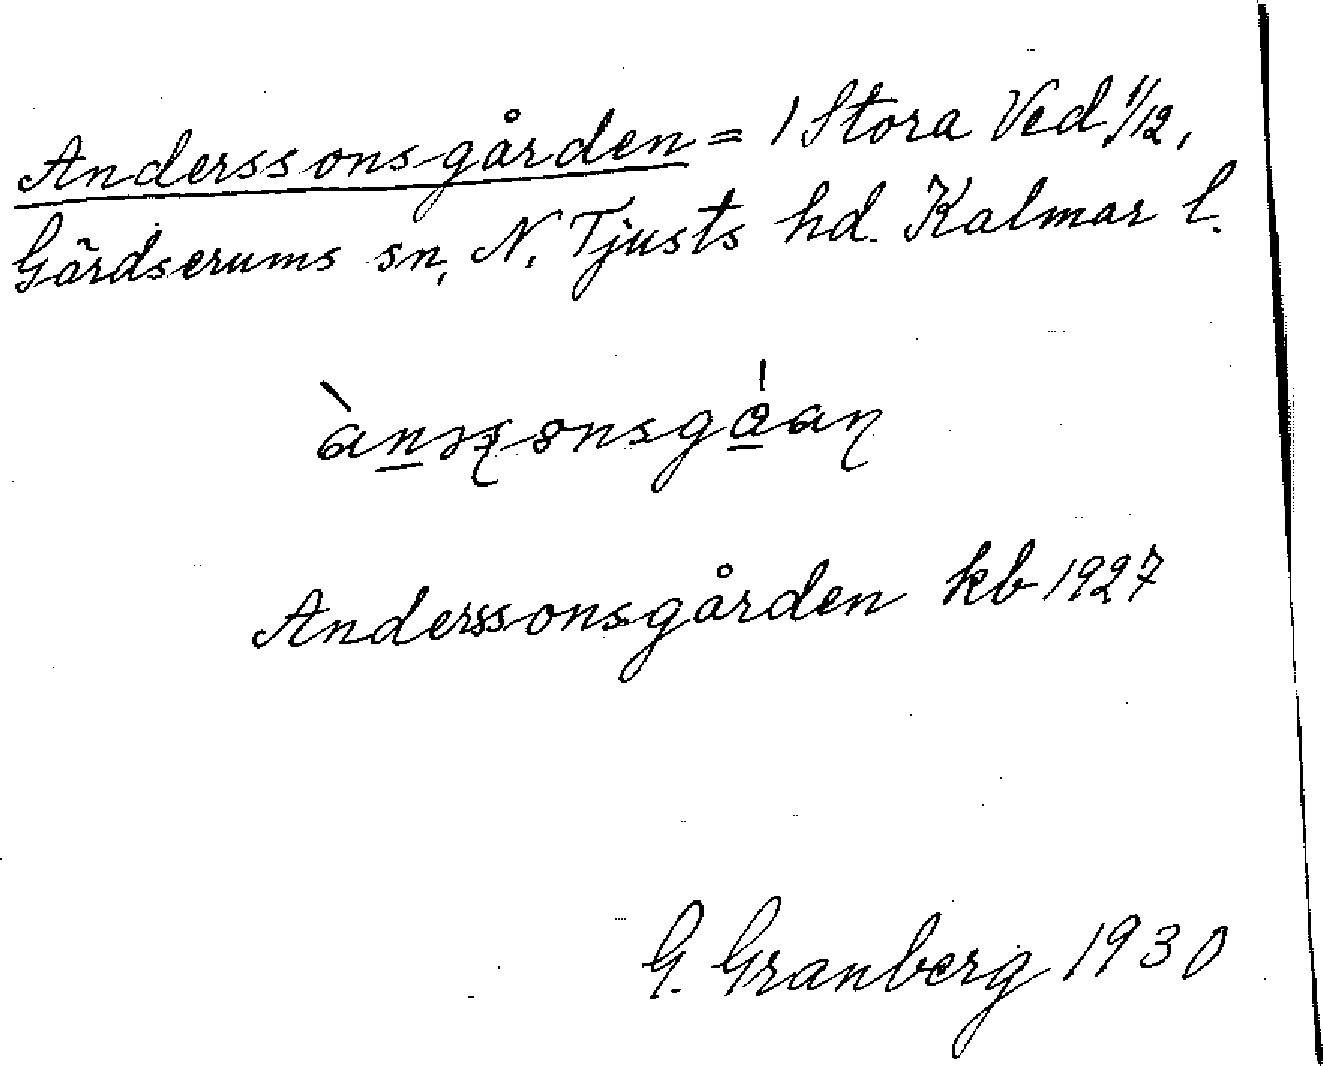 Anderssonsgården = 1 Stora Ved 1/12,
Gärdserums sn, N. Tjusts hd. Kalmar l.
Anderssonsgården kb 1927
G. Granberg 1930